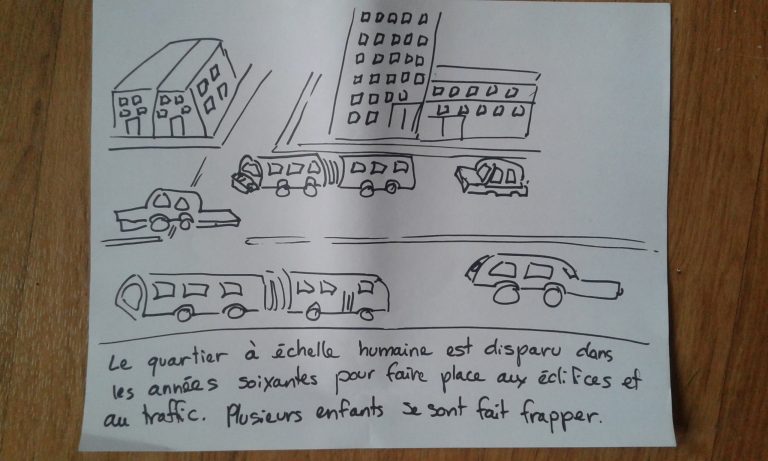 Le quartier à échelle humaine est disparu dans
les années soixantes pour faire place aux éclifices et
au traffic. Plusieurs enfants se sont fait frapper.